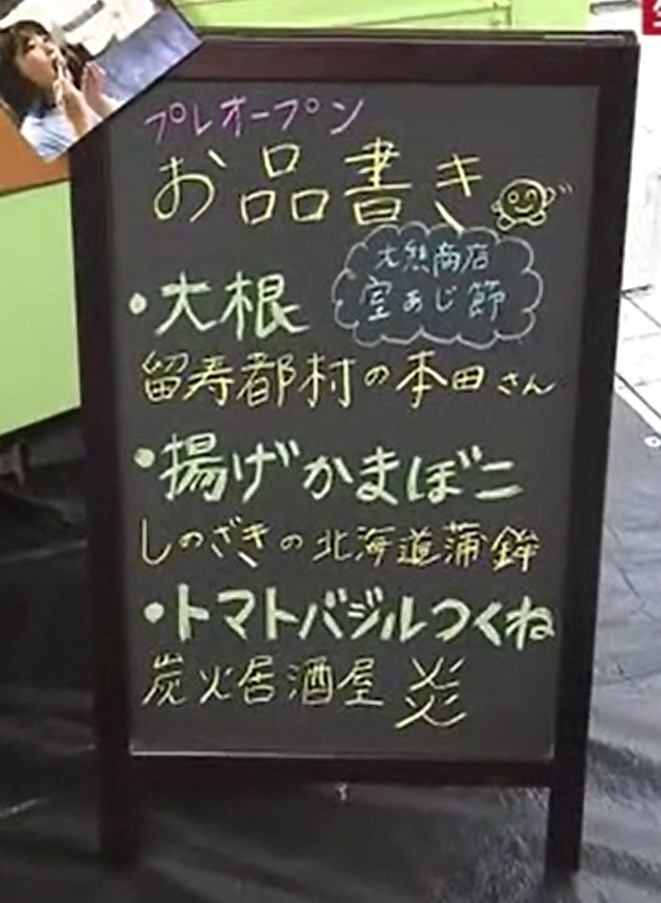 プレオープン
お品書き
大熊商店
室あじ節
・大根
留寿都村の本田さん
・揚げかまぼこ
しのざきの北海道蒲鉾
・トマトバジルつくね
炭火居酒屋 炎